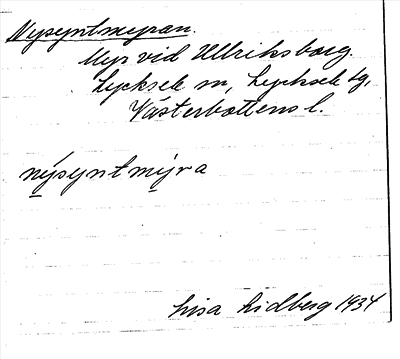 Nysyntmyran.
Myr vid Ullriksberg.
Lycksele sn, Lycksele tg,
Västerbottens l.
nýsyntmýra
Lisa Lidberg 1934